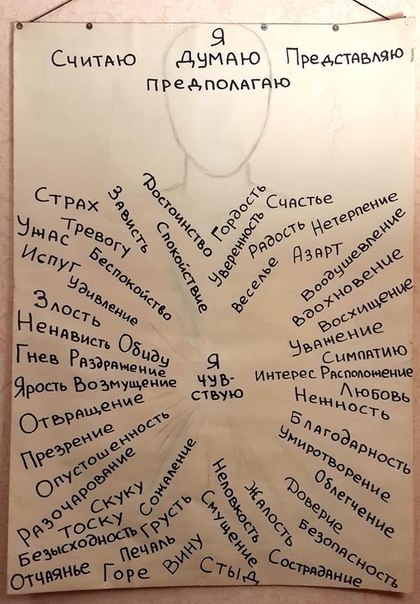 Я
Считаю думаю Представляю
предполагаю
Страх
Зависть
Достоинство
Спокойствие
Гордость
Уверенность
Счастье
Радость
Веселье
Нетерпение
Азарт
Воодушевление
Вдохновение
Восхищение
Уважение
Симпатию
Интерес Расположение
Любовь
Нежность
Благодарность
Умиротворение
Облегчение
Доверие
Безопасность
Жалость
Сострадание
Неловкость
Смущение
Стыд
Вину
Сожаление
Грусть
Печаль
Горе
Скуку
Тоску
Безысходность
Отчаянье
Разочарование
Опустошенность
Презрение
Отвращение
Ярость Возмущение
Гнев Раздражение
Ненависть Обиду
Злость
Удивление
Испуг
Беспокойство
Ужас
Тревогу
Я
чув-
ствую